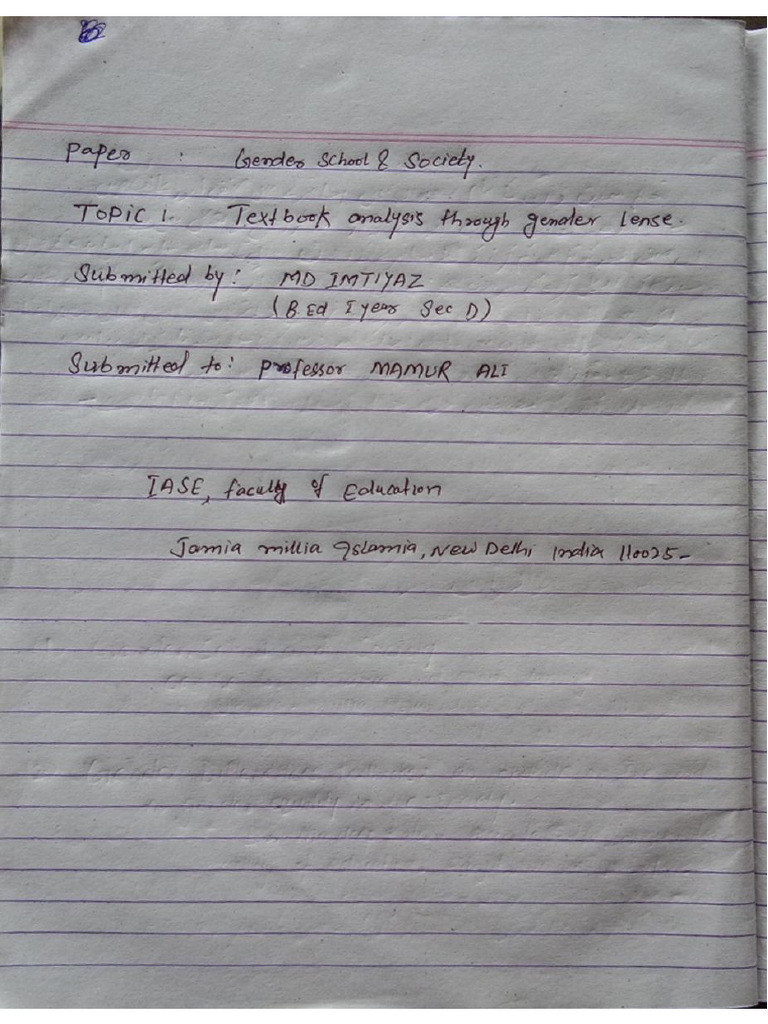 Paper : Gender School & Society.
TOPIC 1. Textbook analysis through gender lense.
Submitted by: MD IMTIYAZ
(B.Ed I year Sec D)
Submitted to: Professor MAMUR ALI
IASE, faculty of Education
Jamia millia Islamia, New Delhi India 110025-